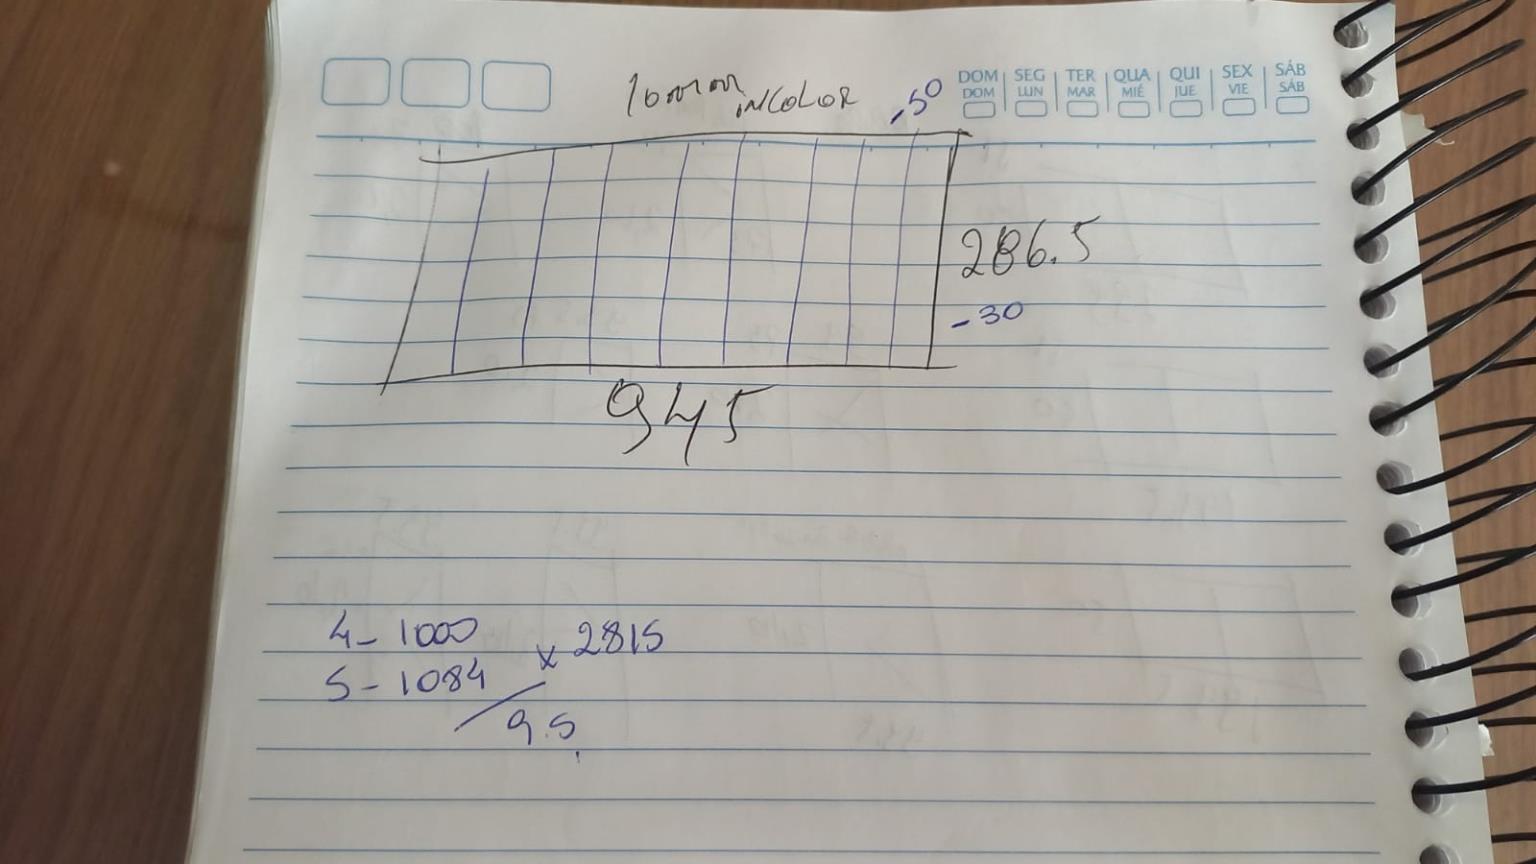 10mm INCOLOR -50
DOM SEG TER QUA QUI SEX SÁB
DOM LUN MAR MIÉ JUE VIE SÁB
286.5
-30
945
4- 1000
x 2815
5- 1084
9.5